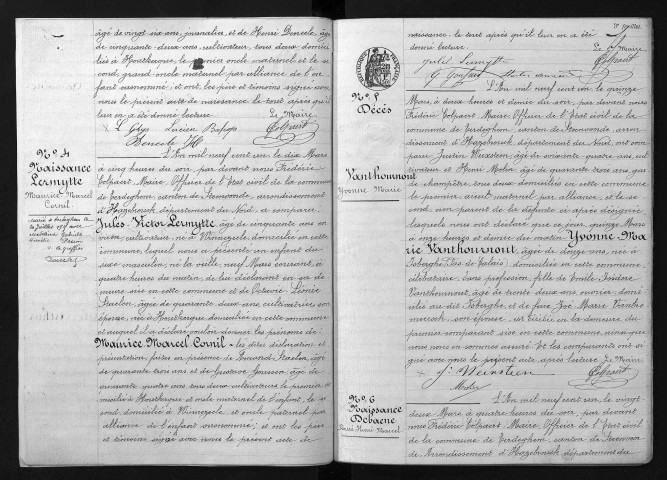 âgé de vingt six ans, journalier, et de Henri Benecle, âgé
de cinquante-deux ans, cultivateur, tous deux domici-
liés à Houtkerque, le premier oncle maternel et le se-
cond grand oncle maternel par alliance de l'en
fant susnommé; et ont, les père et témoins signé avec
nous le présent acte de naissance le tout après qu'il
leur en a été donné lecture. Le Maire
N°. 4
Naissance
Lermytte
Maurice Marcel
Cornil
L'An mil neuf cent un le dix Mars
à cinq heures du soir par devant nous Frédéric
Volpaert Maire Officier de l'Etat civil de la commu
ne d'Oerdeghem, canton de Steenvoorde, arrondissement
d'Hazebrouck, département du Nord, a comparu
Jules Victor Lermytte, âgé de cinquante ans en
viron, cultivateur, né à Winnezeele domicilié en cette
commune, lequel nous a présenté un enfant du
sexe masculin, né la veille, neuf Mars courant, à
quatre heures du matin, de lui déclarant en sa de
meure sise en cette commune et de Octavie Léonie
Staelen, âgée de quarante deux ans, cultivatrice, son
épouse, née à Houtkerque domiciliée en cette commune
et auquel il a déclaré vouloir donner les prénoms de
Maurice Marcel Cornil – les dites déclaration et
présentation faites en présence de Edmond Staelen, âgé
de quarante trois ans et de Gustave Goussen, âgé de
quarante quatre ans tous deux cultivateurs le premier do
micilié à Houtkerque et oncle maternel de l'enfant, le se
cond domicilié à Winnezeele et oncle paternel par
alliance de l'enfant susnommé; et ont les père
et témoins signé avec nous le présent acte de
naissance, le tout après qu'il leur en a été
donné lecture. Le Maire
N°. 5
Décès
Vanthournout
Yvonne Marie
L'An mil neuf cent un, le quinze
Mars, à deux heures et demie du soir, par devant nous
Frédéric Volpaert Maire Officier de l'Etat civil de la
commune d'Oerdeghem, canton de Steenvoorde, arrondissement
d'Hazebrouck département du Nord, ont com
paru Justin Weixsteen, âgé de soixante quatre ans, cul
tivateur et Henri Moder, âgé de quarante ans, gar
de champêtre, tous deux domiciliés en cette commune
le premier aïeul maternel par alliance, et le se
cond non parent de la défunte ci après désignée
lesquels nous ont déclaré que ce jour, quinze Mars
à onze heures et demie du matin, Yvonne Ma
rie Vanthournout, âgée de douze ans, née à
Isbergh, Pas de Calais, domiciliée en cette commune
célibataire sans profession, fille de Emile Isidore
Vanthournout, âgé de trente deux ans, ouvrier, domi
cilié au dit Isberghe, et de feue Zoé Marie
son épouse, est décédée en la demeure du
premier comparant sise en cette commune, ainsi que
nous nous en sommes assuré. Et les comparants ont si
gné avec nous le présent acte, après lecture. Le Maire
N°. 6
Naissance
Debaene
Henri Marcel
L'An mil neuf cent un, le vingt
deux Mars à quatre heures du soir, par devant
nous Frédéric Volpaert, Maire, Officier de l'Etat civil de
la commune d'Oerdeghem, canton de Steenvoorde
arrondissement d'Hazebrouck département du